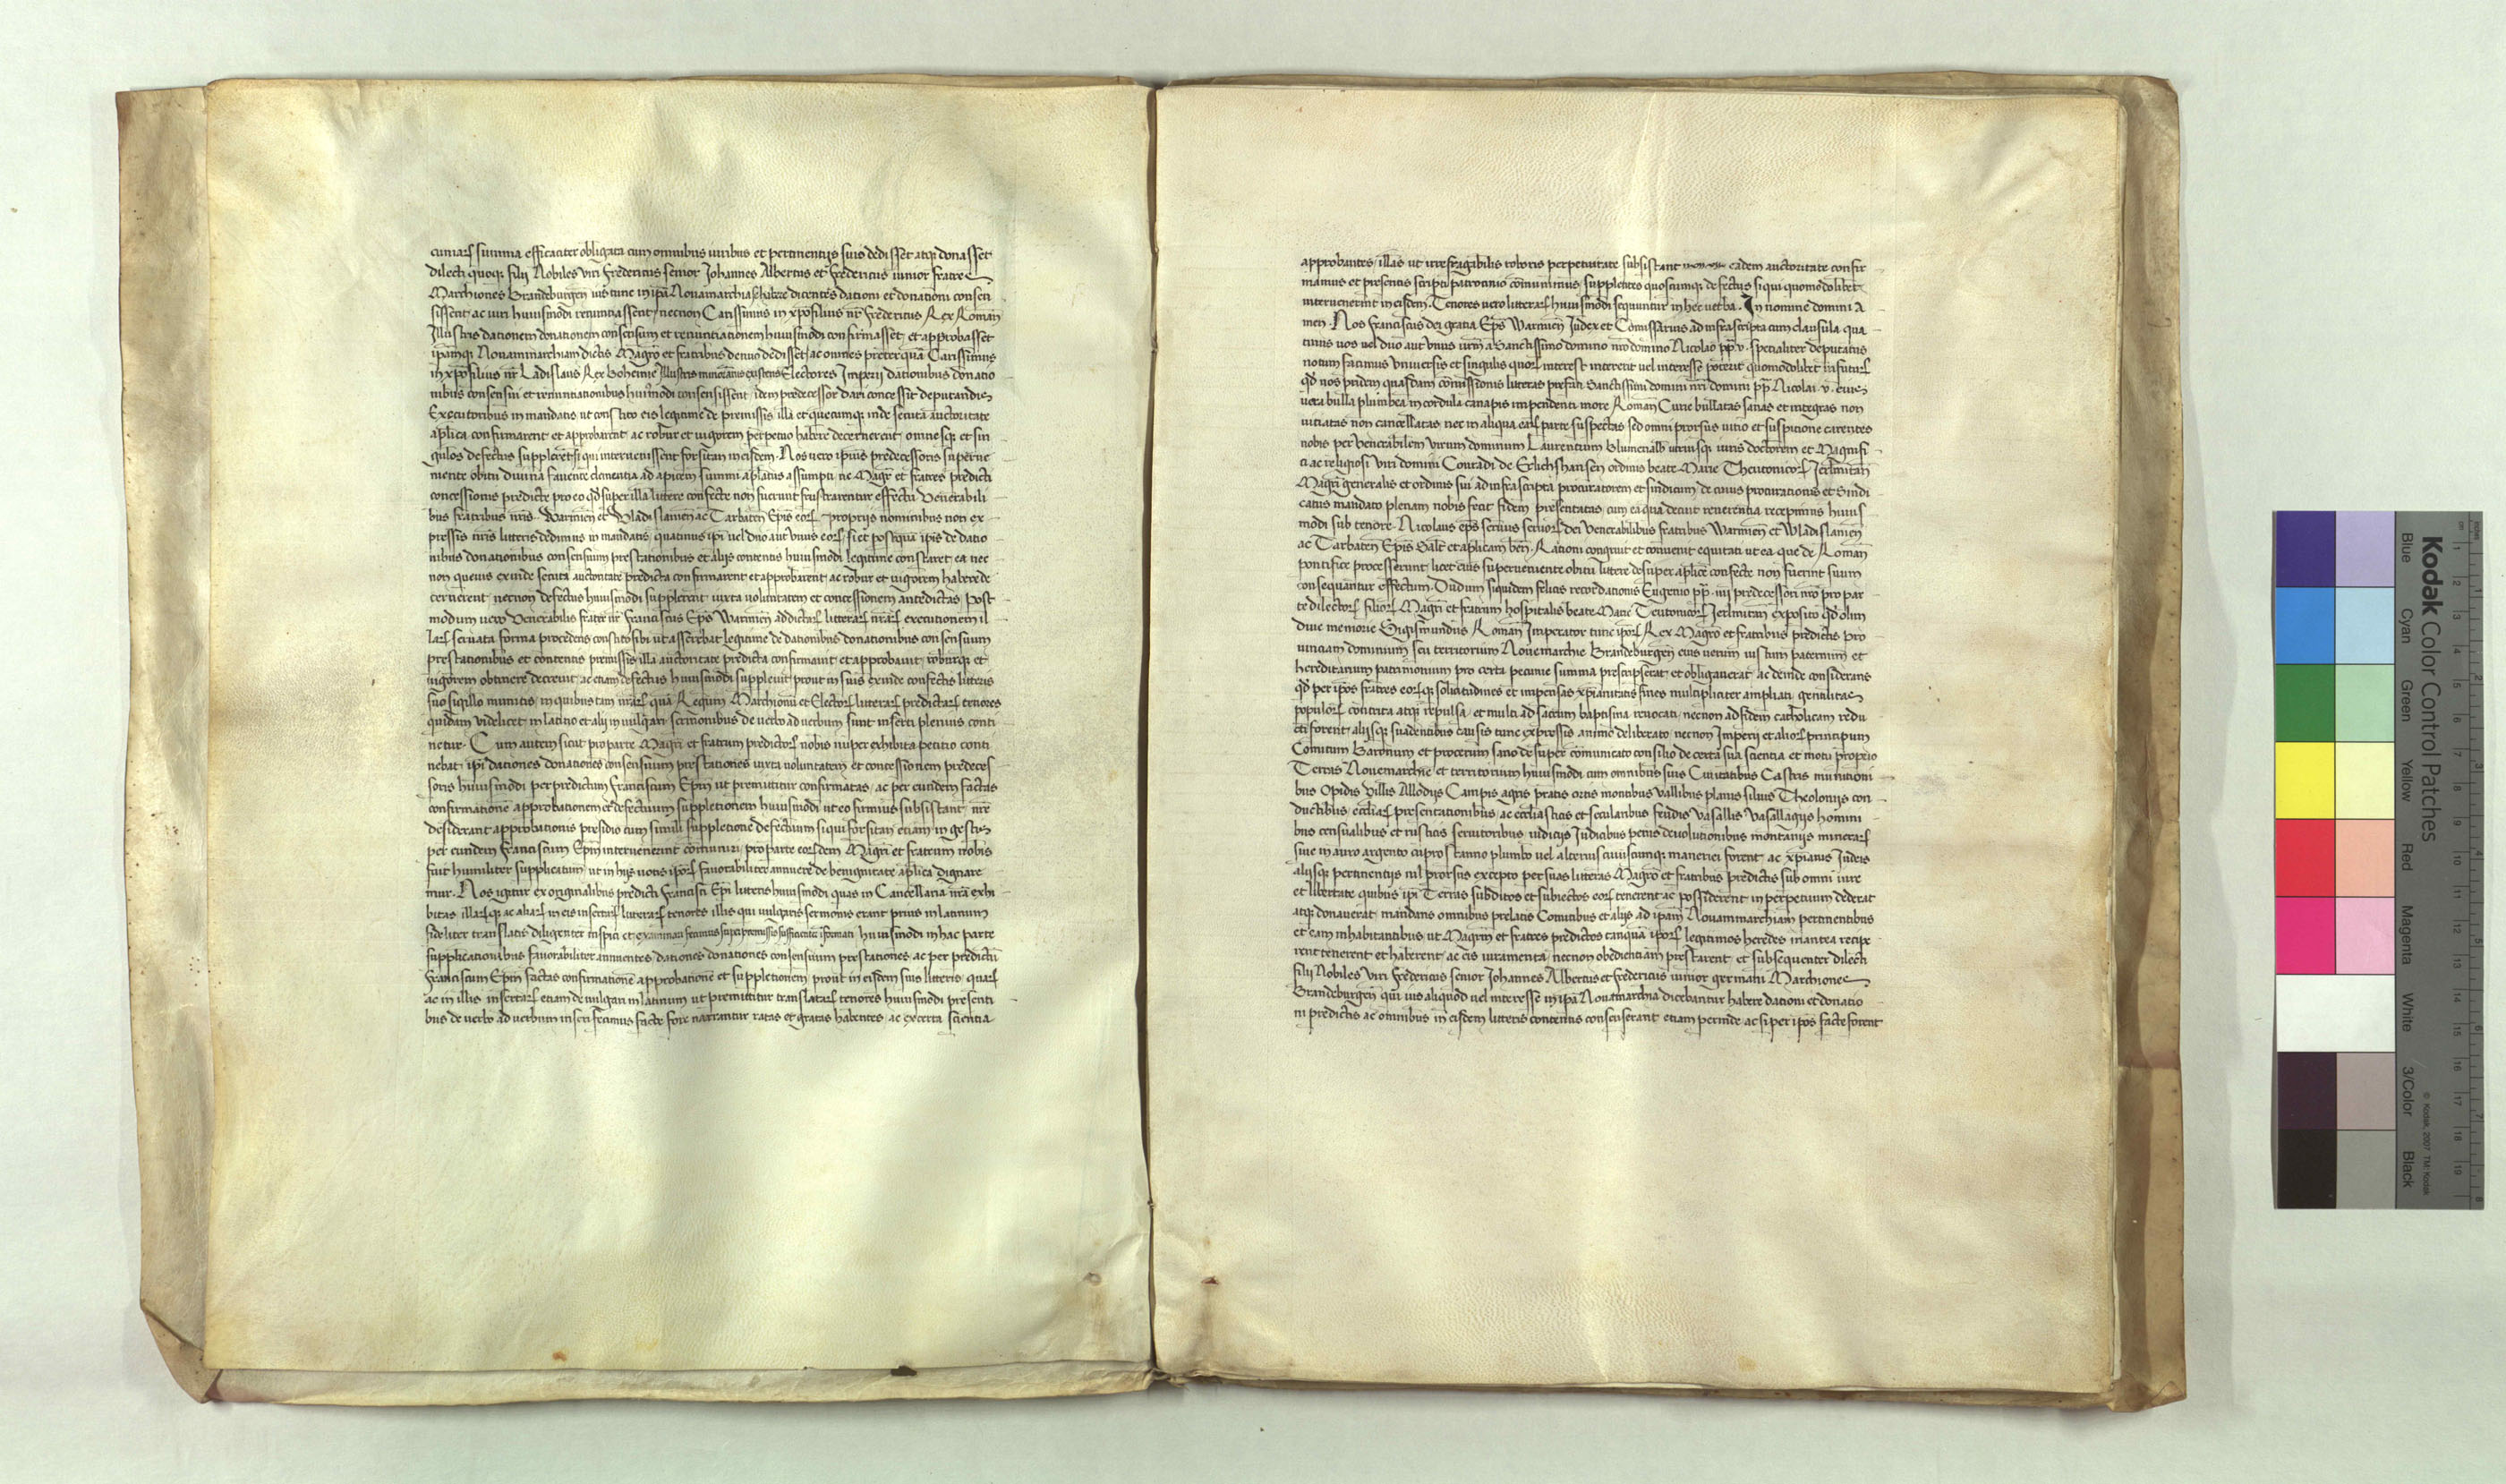 cuniarꝝ summa efficaciter obligata cum omnibus iuribus et pertinentijs suis dedisset atqꝫ donasset
dilecti quoqꝫ filij Nobiles viri fredericus senior Johannes Albertus et fredericus iunior fratres
Marchiones Brandeburgen̄ ius tunc in ip̄a Nouamarchia se habere dicentes dationi et donationi consen
sissent ac iuri huiusmodi renuntiassent necnon Carissimus in xp̄o filius nr̄ fredericus Rex Roman̄
Illustris dationem donationem consensum et renuntiationem huiusmodi confirmasset et approbasset
ip̄amqꝫ Nouammarchiam dictis Magr̄o et fratribus denuo dedisset, ac omnes preter quā Carissimus
in xp̄o filius nr̄ Ladislaus Rex Bohemie Illustris existens Electores Imperij dationibus donatio
nibus consensui et renuntiationibus huiꝰmodi consensissent idem predecessor dari concessit deputandis
Executoribus in mandatis ut constito eis legitime de premissis illa et quecumqꝫ inde secuta auctoritate
ap̄lica confirmarent et approbarent ac robur et vigorem perpetuo habere decernerent omnesqꝫ et sin
gulos defectus supplerēt si qui interuenissent forsitan in eisdem. Nos vero ip̄ius predecessoris superue
niente obitu diuina fauente clementia ad apicem summi ap̄latus assumpti ne Magr̄ et fratres predicti
concessionis predicte pro eo qd̄ super illa littere confecte non fuerunt frustrarentur effectu Venerabili
bus fratribus nr̄is Warmien̄ et Wladislauien̄ ac Tarbaten̄ Ep̄is eorꝝ propriis nominibus non ex
pressis nr̄is litteris dedimus in mandatis quatinus ipi vel duo aut vnus eorꝝ, si et postquā ip̄is de datio
nibus donationibus consensuum prestationibus et alijs contentis huiusmodi legitime constaret ea nec
non queuis exinde secuta auctoritate predicta confirmarent et approbarent ac robur et vigorem habere de
cernerent necnon defectus huiusmodi supplerent iuxta voluntatem et concessionem antedictas, Post
modum vero Venerabilis frater nr̄ Franciscus Ep̄s Warmien̄ ad dictarꝝ litterarꝝ nr̄arꝝ executionem il
larꝝ seruata forma procedens constito sibi ut asserebat legitime de dationibus donationibus consensuum
prestationibus et contentis premissis illa auctoritate predicta confirmauit et approbauit roburqꝫ et
vigorem obtinere decreuit, ac etiam defectus huiusmodi suppleuit prout in suis exinde confectis litteris
suo sigillo munitis, in quibus tam nr̄arꝝ quā Regum Marchionū et Electorꝝ litterarꝝ predictarꝝ tenores
quidam videlicet in latino et alij in vulgari sermonibus de verbo ad verbum sunt inserti plenius conti
netur. Cum autem sicut pro parte Magr̄i et fratrum predictorꝝ nobis nuper exhibita petitio conti
nebat ip̄i dationes donationes consensuum prestationes iuxta voluntatem et concessionem predeces
soris huiusmodi per predictum Franciscum Ep̄m ut premittitur confirmatas, ac per eundem factas
confirmationē approbationem et defectuum suppletionem huiusmodi ut eo firmius subsistant nr̄e
desiderant approbationis presidio cum simili suppletione defectuum si qui forsitan etiam in gestis
per eundem Franciscum Ep̄m interuenerint cōmuniri, pro parte eorꝝdem Magr̄i et fratrum nobis
fuit humiliter supplicatum ut in hijs votis ip̄orꝝ fauorabiliter annuere de benignitate ap̄lica dignare
mur. Nos igitur ex originalibus predicti Francisci Ep̄i litteris huiusmodi quas in Cancellaria nr̄a exhi
bitas illarꝝqꝫ ac aliarꝝ in eis insertarꝝ litterarꝝ tenores illis qui vulgaris sermonis erant prius in latinum
fideliter translatis diligenter inspici et examinari fecimus super premissis sufficienter informati huiusmodi in hac parte
supplicationibus fauorabiliter annuentes, dationes donationes consensuum prestationes ac per predictū
Franciscum Ep̄m factas confirmationē approbationē et suppletionem prout in eisdem suis litteris quarꝝ
ac in illis insertarꝝ etiam de vulgari in latinum ut premittitur translatarꝝ tenores huiusmodi presenti
bus de verbo ad verbum inseri fecimus facte fore narrantur ratas et gratas habentes, ac ex certa scientia
approbantes, illas ut irrefragabilis roboris perpetuitate subsistant eadem auctoritate confir
mamus et presentis scripti patrocinio cōmunimus, supplentes quoscumqꝫ defectus si qui quomodolibet
interuenerint in eisdem. Tenores vero litterarꝝ huiusmodi sequuntur in hec verba. In nomine domini A
men. Nos Franciscus dei gratia Ep̄s Warmien̄ Judex et Cōmissarius ad infrascripta cum clausula qua
tinus vos vel duo aut vnus vr̄m a Sanctissimo domino nr̄o domino Nicolao pp̄ v. specialiter deputatus
notum facimus Vniuersis et singulis quorꝝ interest intererit vel interesse poterit quomodolibet in futurꝝ
qd̄ nos pridem quasdam cōmissionis litteras prefati Sanctissimi domini nr̄i domini pp̄ Nicolai v. eius
vera bulla plumbea in cordula canapis impendenti more Roman̄ Curie bullatas sanas et integras non
vitiatas non cancellatas nec in aliqua earꝝ parte suspectas sed omni prorsus vitio et suspitione carentes
nobis per Venerabilem virum dominum Laurentium Blumenaw vtriusqꝫ iuris doctorem et Magnifi
ci ac religiosi viri domini Conradi de Erlichshausen ordinis beate Marie Theutonicorꝝ Jerlimitan̄
Magr̄i generalis et ordinis sui ad infrascripta procuratorem et sindicum de cuius procurationis et Sindi
catus mandato plenam nobis fecit fidem presentatas, cum ea qua decuit reuerentia recepimus huius
modi sub tenore. Nicolaus ep̄s seruus seruorꝝ dei Venerabilibus fratribus Warmien̄ et Wladislauien̄
ac Tarbaten̄ Ep̄is Salt̄ et ap̄licam ben̄. Rationi congruit et conuenit equitati ut ea que de Roman̄
pontifice processerunt, licet eius superueniente obitu littere desuper ap̄lice confecte non fuerint suum
consequantur effectum. Dudum siquidem felicis recordationis Eugenio pp̄ iiij predecessori nr̄o pro par
te dilectorꝝ filiorꝝ Magr̄i et fratrum hospitalis beate Marie Teutonicorꝝ Jerlimitan̄ exposito qd̄ olim
diue memorie Sigismundus Roman̄ Imperator tunc ip̄orꝝ Rex Magr̄o et fratribus predictis pro
uinciam dominium seu territorium Nouemarchie Brandeburgen̄ eius verum iustum paternum et
hereditarium patrimonium pro certa pecunie summa prescripserat et obligauerat ac deinde considerans
qd̄ per ip̄os fratres eorꝝqꝫ solicitudines et impensas xp̄ianitatis fines multipliciter ampliati, gentilitas
populorꝝ contrita atqꝫ repulsa, et multi ad sacrum baptisma reuocati necnon ad fidem catholicam redu
cti forent alijsqꝫ suadentibus causis tunc expressis animo deliberato necnon Imperij et aliorꝝ principum
Comitum Baronum et procerum sano desuper cōmunicato consilio de certa sua scientia et motu proprio
Terras Nouemarchie et territorium huiusmodi cum omnibus suis Ciuitatibus Castris munitioni
bus Opidis Villis Allodijs Campis agris pratis ortis montibus vallibus planis siluis Theolonijs con
ductibus eccl̄iarꝝ presentationibus, ac eccl̄iasticis et secularibus feudis Vasallis Vasallagijs homini
bus censualibus et rusticis seruitoribus iudicijs Judicibus penis deuolutionibus montanijs minerarꝝ
siue in auro argento cupro stanno plumbo vel alterius cuiuscumqꝫ maneriei forent ac xp̄ianis Judeis
alijsqꝫ pertinentijs nil prorsus excepto per suas litteras Magr̄o et fratribus predictis sub omni iure
et libertate quibus ip̄i Terras subditos et subiectos eorꝝ tenerent ac possiderent in perpetuum dederat
atqꝫ donauerat mandans omnibus prelatis Comitibus et alijs ad ip̄am Nouammarchiam pertinentibus
et eam inhabitantibus, ut Magr̄m et fratres predictos tanquā ip̄orꝝ legitimos heredes in antea recipe
rent tenerent et haberent, ac eis iuramenta necnon obedientiam prestarent et subsequenter dilecti
filij Nobiles viri Fredericus senior Johannes Albertus et Fredericus iunior germani Marchiones
Brandeburgen̄ qui ius aliquod vel interesse in ip̄a Nouamarchia dicebantur habere dationi et donatio
ni predictis ac omnibus in eisdem litteris contentis consenserant etiam perinde ac si per ip̄os facte forent
Kodak Color Control Patches
Blue Cyan Green Yellow Red Magenta White 3/Color Black
© Kodak, 2007 TM: Kodak